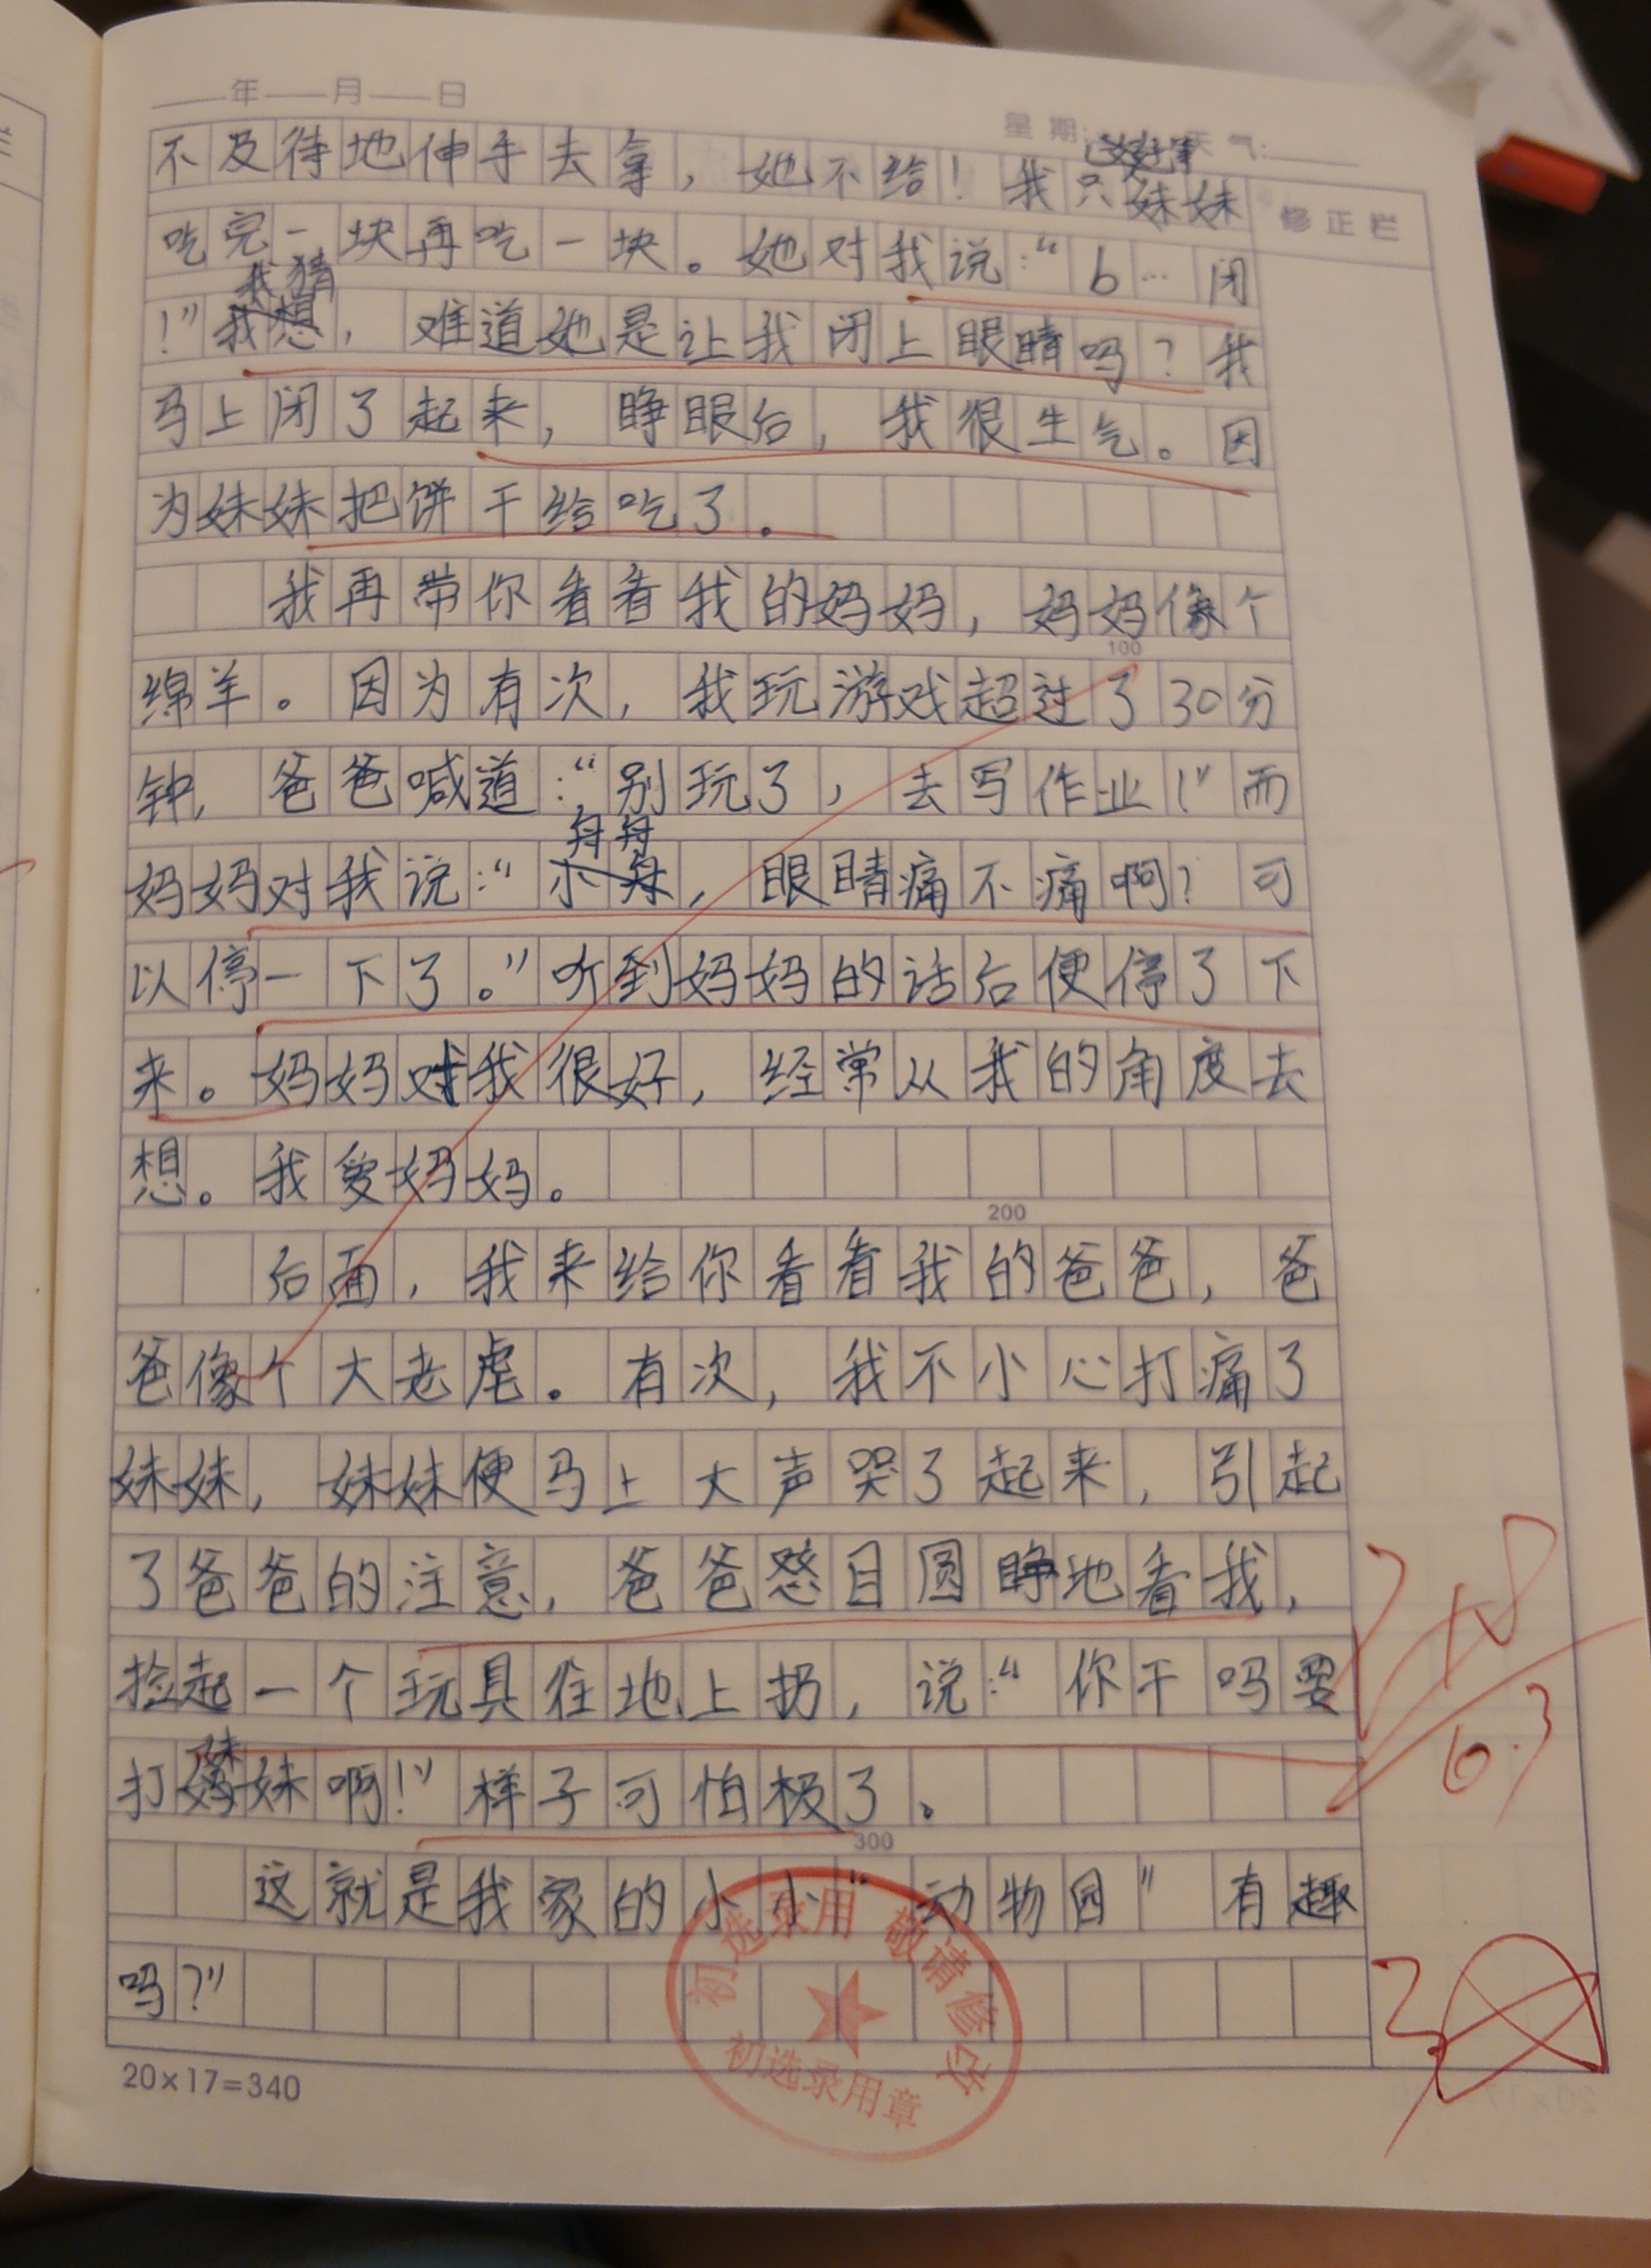 年 月 日
星期: 天气:
不及待地伸手去拿，她不给！我只妹妹
修正栏
吃完一块再吃一块。她对我说：“b…闭
我猜
！”我想，难道她是让我闭上眼睛吗？我
马上闭了起来，睁眼后，我很生气。因
为妹妹把饼干给吃了。
我再带你看看我的妈妈，妈妈像个
100
绵羊。因为有次，我玩游戏超过了30分
钟，爸爸喊道：“别玩了，去写作业！”而
舟舟
妈妈对我说：“小舟，眼睛痛不痛啊？可
以停一下了。”听到妈妈的话后便停了下
来。妈妈对我很好，经常从我的角度去
想。我爱妈妈。
200
后面，我来给你看看我的爸爸，爸
爸像个大老虎。有次，我不小心打痛了
妹妹，妹妹便马上大声哭了起来，引起
了爸爸的注意，爸爸怒目圆睁地看我，
捡起一个玩具往地上扔，说：“你干吗要
打妹妹啊！”样子可怕极了。
6.3
300
这就是我家的小小“动物园”有趣
吗？”
初选录用 敬请修改
初选录用章
20×17=340